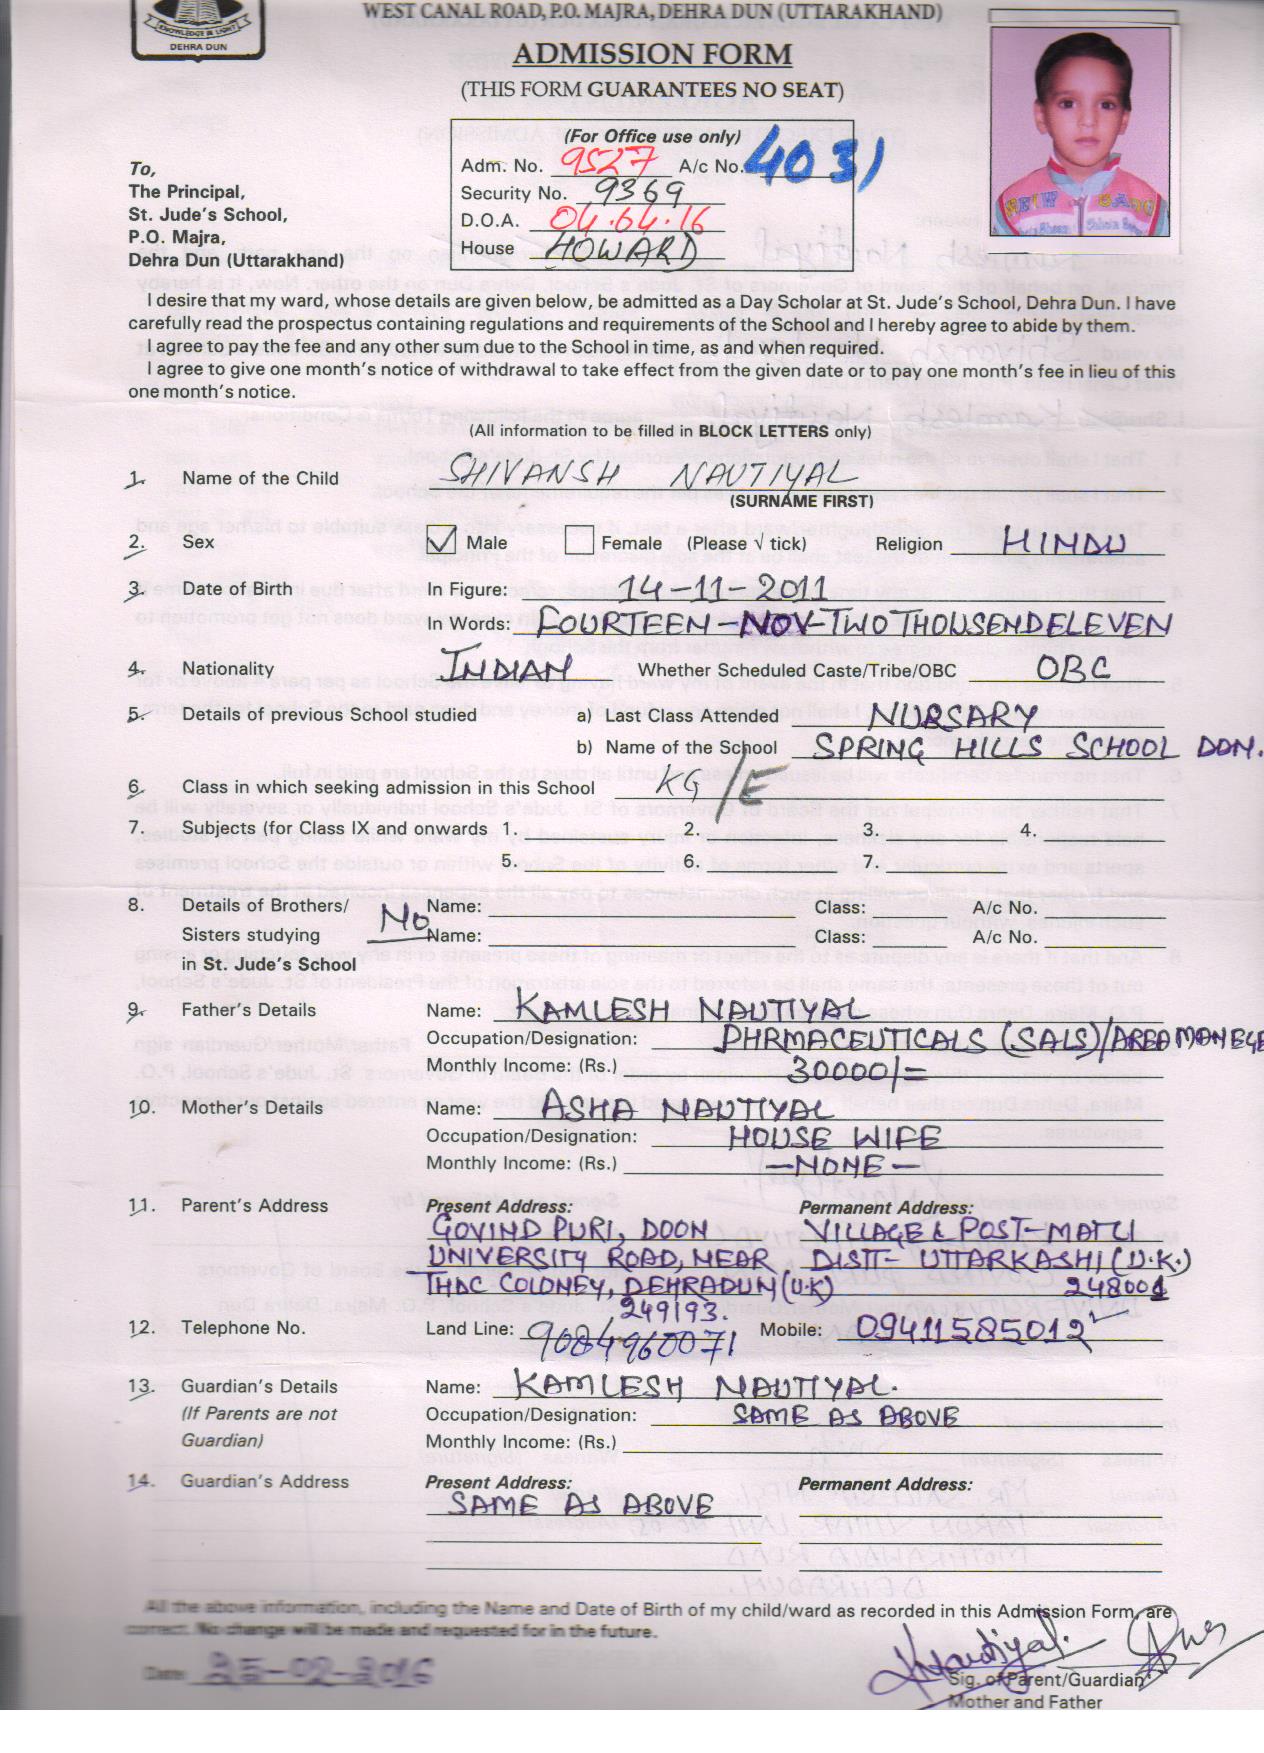 WEST CANAL ROAD, P.O. MAJRA, DEHRA DUN (UTTARAKHAND)
KNOWLEDGE IS LIGHT
DEHRA DUN
ADMISSION FORM
(THIS FORM GUARANTEES NO SEAT)
(For Office use only)
Adm. No. 9527 A/c No. 4031
Security No. 9369
D.O.A. 04.04.16
House HOWARD
To,
The Principal,
St. Jude's School,
P.O. Majra,
Dehra Dun (Uttarakhand)
I desire that my ward, whose details are given below, be admitted as a Day Scholar at St. Jude's School, Dehra Dun. I have
carefully read the prospectus containing regulations and requirements of the School and I hereby agree to abide by them.
I agree to pay the fee and any other sum due to the School in time, as and when required.
I agree to give one month's notice of withdrawal to take effect from the given date or to pay one month's fee in lieu of this
one month's notice.
(All information to be filled in BLOCK LETTERS only)
1. Name of the Child SHIVANSH NAUTIYAL
(SURNAME FIRST)
2. Sex Male Female (Please √ tick) Religion HINDU
3. Date of Birth In Figure: 14-11-2011
In Words: FOURTEEN-NOV-TWO THOUSENDELEVEN
4. Nationality INDIAN Whether Scheduled Caste/Tribe/OBC OBC
5. Details of previous School studied a) Last Class Attended NURSARY
b) Name of the School SPRING HILLS SCHOOL DDN.
6. Class in which seeking admission in this School KG/E
7. Subjects (for Class IX and onwards 1. 2. 3. 4.
5. 6. 7.
8. Details of Brothers/ Name: Class: A/c No.
Sisters studying No Name: Class: A/c No.
in St. Jude's School
9. Father's Details Name: KAMLESH NAUTIYAL
Occupation/Designation: PHRMACEUTICALS (SALS)/AREA MANEGE
Monthly Income: (Rs.) 30000/=
10. Mother's Details Name: ASHA NAUTIYAL
Occupation/Designation: HOUSE WIFE
Monthly Income: (Rs.) -NONE-
11. Parent's Address Present Address: Permanent Address:
GOVIND PURI, DOON VILLAGE & POST-MATLI
UNIVERSITY ROAD, NEAR DISTT- UTTARKASHI (U.K.)
THDC COLONEY, DEHRADUN (U.K) 248001
249193.
12. Telephone No. Land Line: 9084960071 Mobile: 09411585012
13. Guardian's Details Name: KAMLESH NAUTIYAL.
(If Parents are not Occupation/Designation: SAME AS ABOVE
Guardian) Monthly Income: (Rs.)
14. Guardian's Address Present Address: Permanent Address:
SAME AS ABOVE
All the above information, including the Name and Date of Birth of my child/ward as recorded in this Admission Form, are
correct. No change will be made and requested for in the future.
Date: 25-02-2016
Sig. of Parent/Guardian
Mother and Father